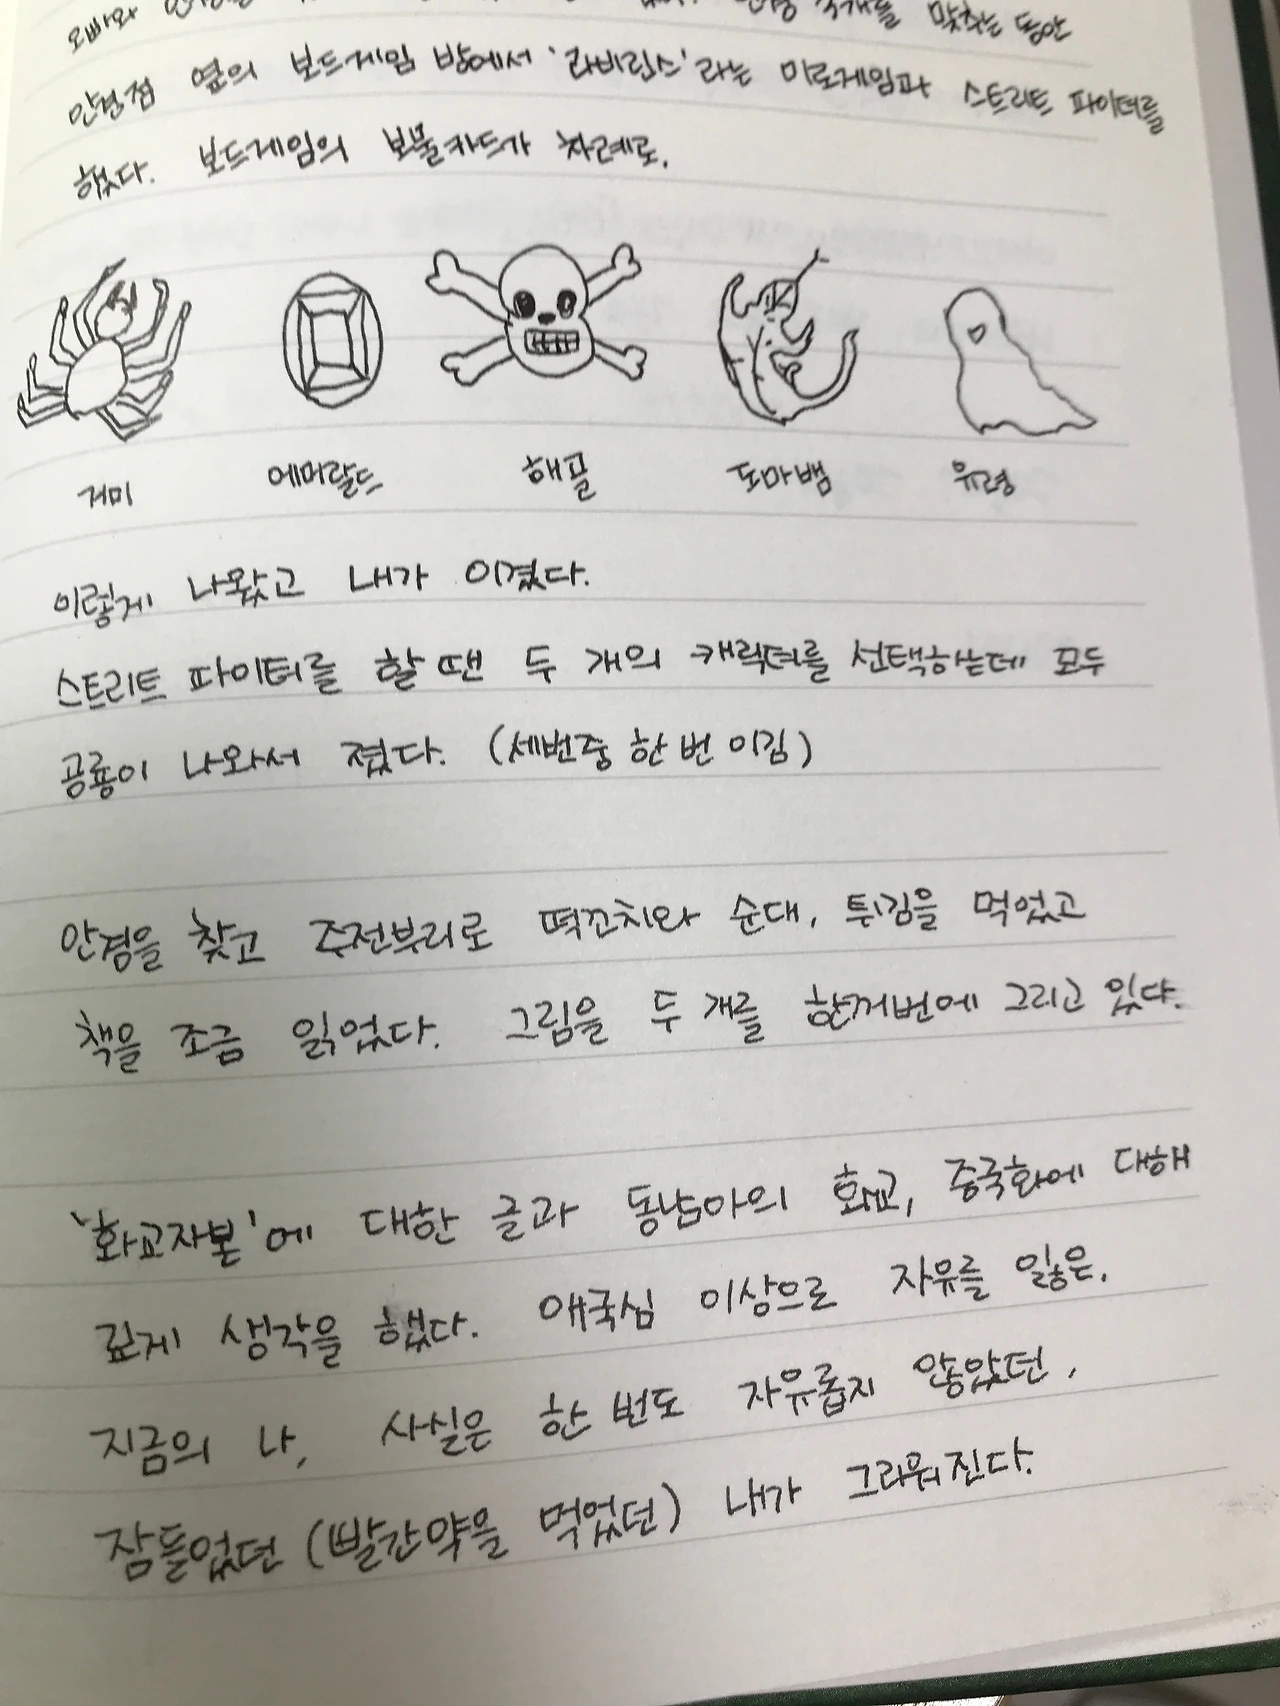 오빠와 맞추는 동안
안경점 옆의 보드게임 방에서 '라비린스'라는 미로게임과 스트리트 파이터를
했다. 보드게임의 보물카드가 차례로,
거미 에메랄드 해골 도마뱀 유령
이렇게 나왔고 내가 이겼다.
스트리트 파이터를 할 땐 두 개의 캐릭터를 선택하는데 모두
공룡이 나와서 졌다. (세번중 한 번 이김)
안경을 찾고 주전부리로 떡꼬치와 순대, 튀김을 먹었고
책을 조금 읽었다. 그림을 두 개를 한꺼번에 그리고 있다.
'화교자본'에 대한 글과 동남아의 화교, 중국화에 대해
깊게 생각을 했다. 애국심 이상으로 자유를 잃은,
지금의 나, 사실은 한 번도 자유롭지 않았던,
잠들었던 (빨간약을 먹었던) 내가 그리워진다.